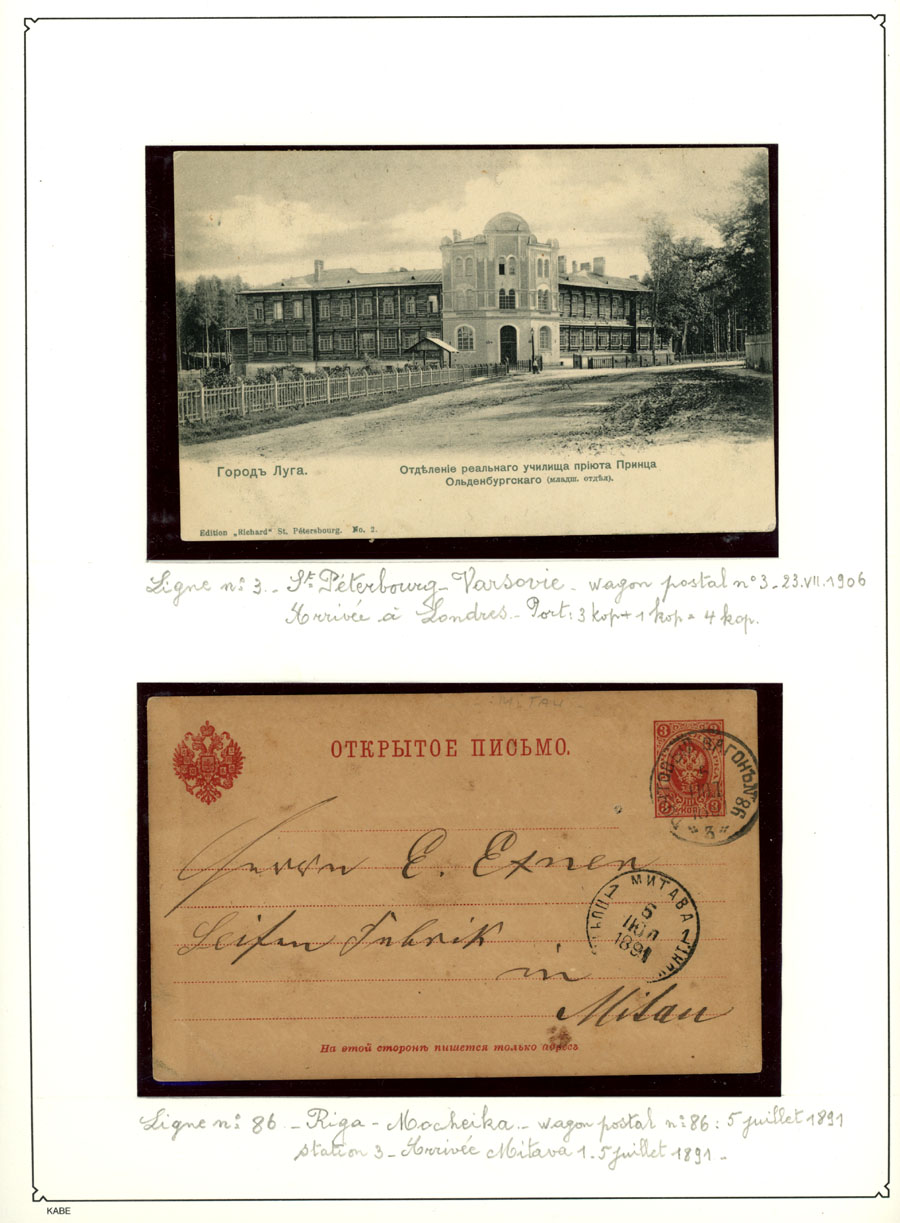 Городъ Луга.
Отдѣленіе реальнаго училища пріюта Принца
Ольденбургскаго (младш. отдѣл).
Edition „Richard“ St. Pétersbourg. No. 2.
Ligne nº 3 - St. Péterbourg - Varsovie - wagon postal nº 3 - 23.VII.1906
Arrivée à Londres - Port: 3 kop + 1 kop = 4 kop.
MITAU
ОТКРЫТОЕ ПИСЬМО.
ВАГОНЪ № 86
3
Herrn E. Exner
МИТАВА
5
ІЮЛ
1891
Seifen Fabrik
in
Mitau
На этой сторонѣ пишется только адресъ
Ligne nº 86 - Riga - Mocheika - wagon postal nº 86 : 5 juillet 1891
station 3 - Arrivée Mitava 1. 5 juillet 1891 -
KABE